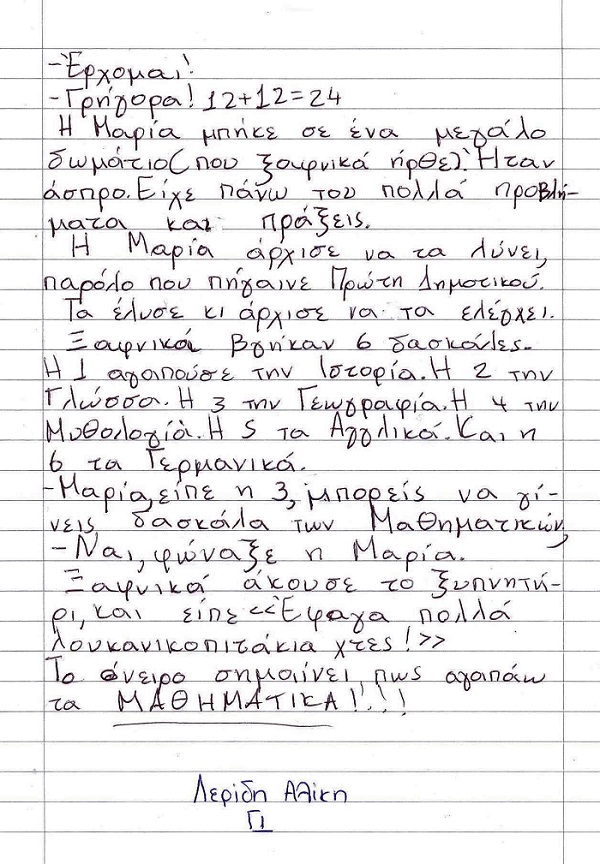 -Έρχομαι!
-Γρήγορα! 12+12=24
Η Μαρία μπήκε σε ένα μεγάλο
δωμάτιο( που ξαφνικά ήρθε). Ήταν
άσπρο. Είχε πάνω του πολλά προβλή-
ματα και πράξεις.
Η Μαρία άρχισε να τα λύνει,
παρόλο που πήγαινε Πρώτη Δημοτικού.
Τα έλυσε κι άρχισε να τα ελέγχει.
Ξαφνικά βγήκαν 6 δασκάλες.
Η 1 αγαπούσε την Ιστορία. Η 2 την
Γλώσσα. Η 3 την Γεωγραφία. Η 4 την
Μυθολογία. Η 5 τα Αγγλικά. Και η
6 τα Γερμανικά.
-Μαρία, είπε η 3, μπορείς να γί-
νεις δασκάλα των Μαθηματικών;
-Ναι, φώναξε η Μαρία.
Ξαφνικά άκουσε το ξυπνητή-
ρι, και είπε <<Έφαγα πολλά
λουκανικοπιτάκια χτες!>>
Το όνειρο σημαίνει πως αγαπάω
τα ΜΑΘΗΜΑΤΙΚΑ!!!!
Λερίδη Αλίκη
Γ1